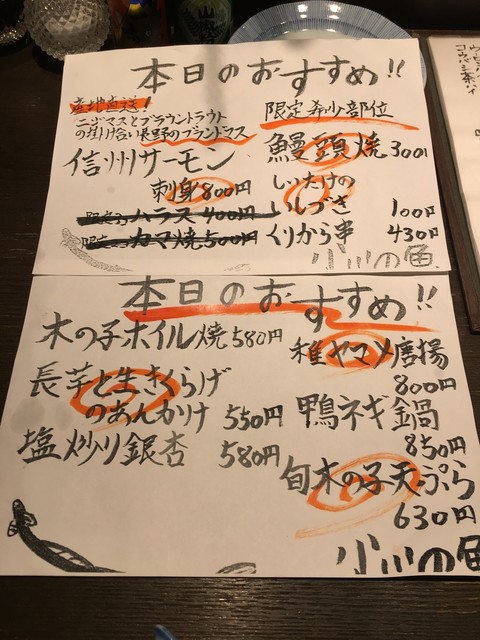 本日のおすすめ!!
産地直送!
ニジマスとブラウントラウト
の掛け合い長野のブランドマス
信州サーモン
刺身800円
ハラス400円
カマ焼500円
限定希少部位
鰻頭焼300円
しいたけの
いしづき 100円
くりから串 430円
小川の魚
本日のおすすめ!!
木の子ホイル焼580円
長芋と生きくらげ
のあんかけ 550円
塩炒り銀杏 580円
稚ヤマメ唐揚
800円
鴨ネギ鍋
850円
旬木の子天ぷら
630円
小川の魚